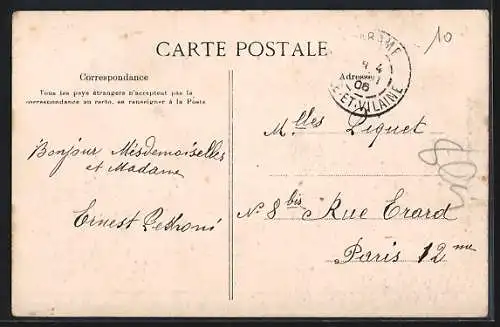 10
CARTE POSTALE
PARAMÉ
4
06
E-ET-VILAINE
Correspondance
Tous les pays étrangers n'acceptent pas la
correspondance au recto, se renseigner à la Poste
Adresse
Bonjour Mesdemoiselles
et Madame
Ernest
Mlles Piquet
N. 8 bis Rue Erard
Paris 12me